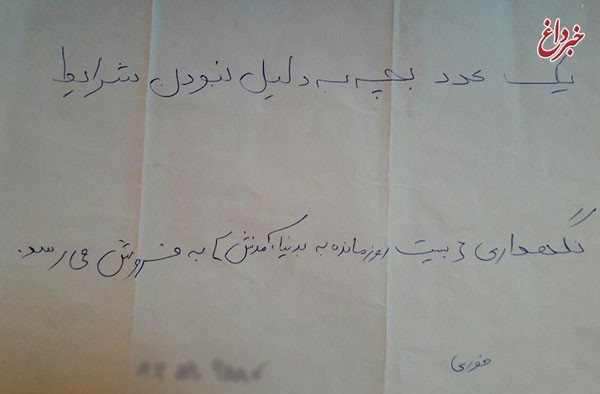 خبرداغ
یک عدد بچه به دلیل نبودن شرایط
نگهداری و بیست روز مانده به بدنیا آمدنش به فروش می رسد.
فوری